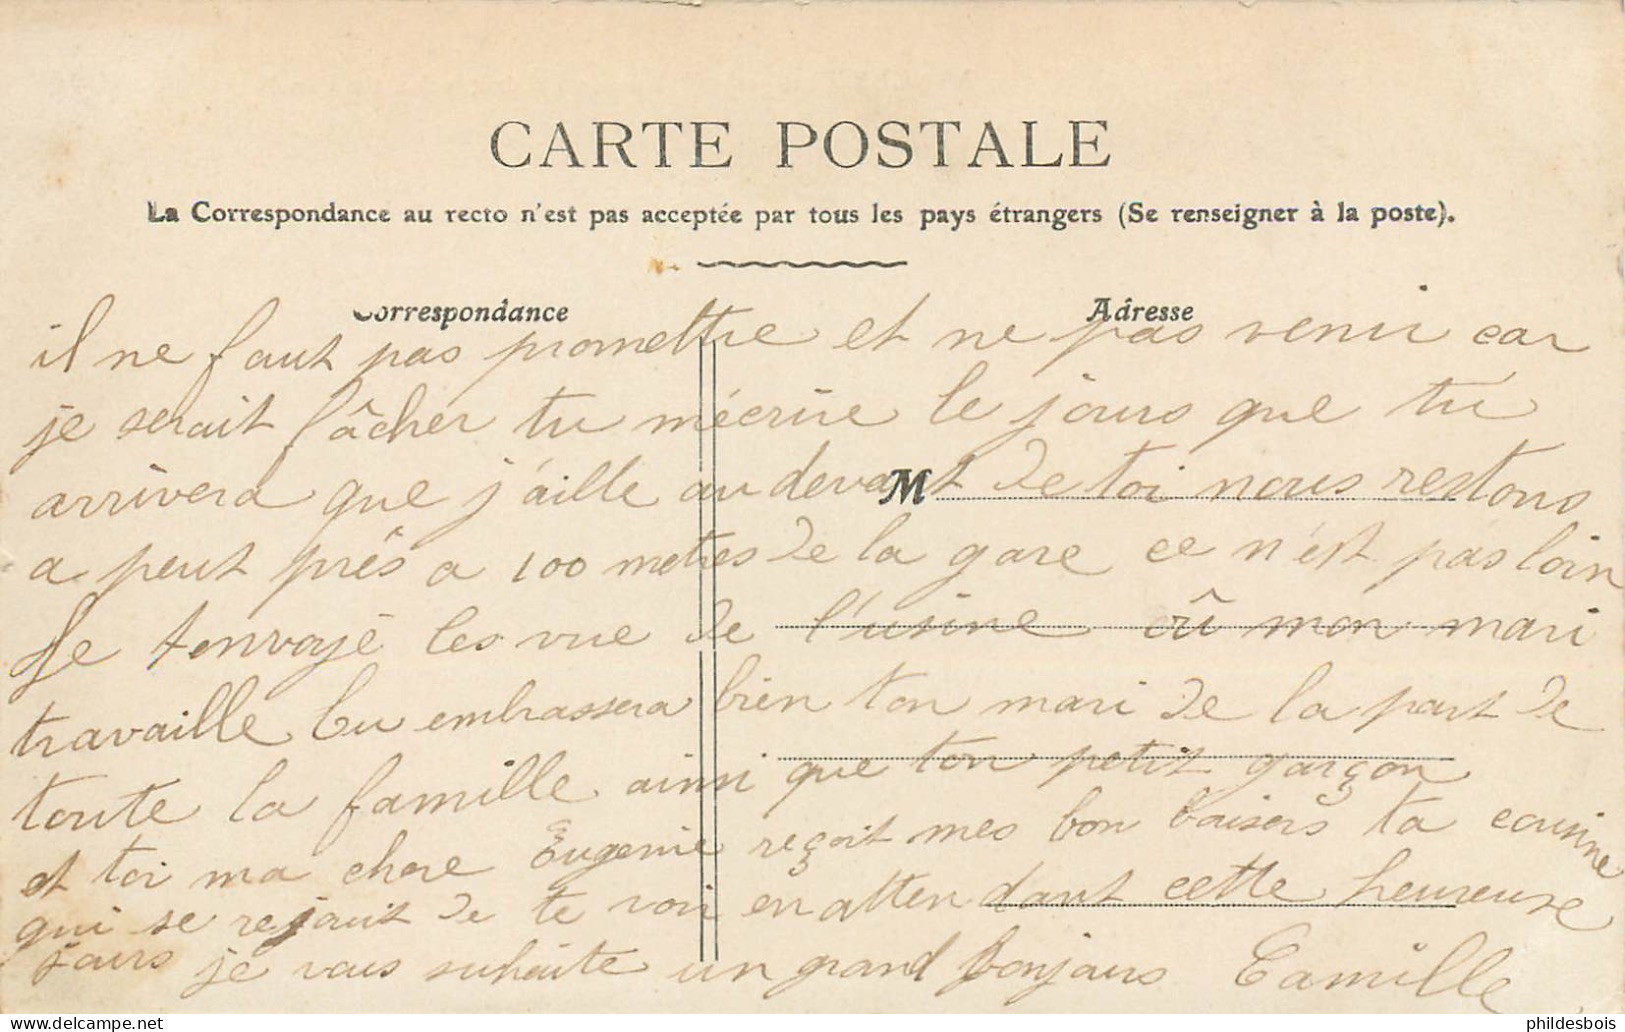 CARTE POSTALE
La Correspondance au recto n'est pas acceptée par tous les pays étrangers (Se renseigner à la poste).
Correspondance
Adresse
il ne faut pas promettre et ne pas venir car
je serait fâcher tu mécrire le jours que tu
arrivera que j'aille au devant de toi nous restons
M
a peut près a 100 metres de la gare ce n'est pas loin
Je tenvoyé les vue de l'usine où mon mari
travaille tu embrassera bien ton mari de la part de
toute la famille ainsi que ton petit garçon
et toi ma chere Eugenie reçoit mes bon baisers ta cousine
qui se rejouit de te voir en attendant cette heureuse
jours je vous suhaite un grand bonjours Camille
phildesbois